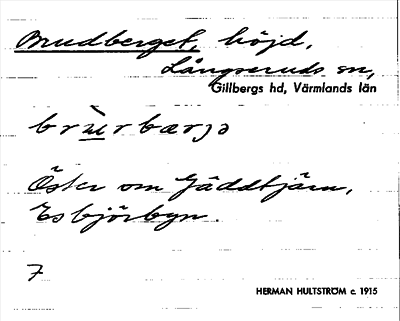 Brudberget, höjd,
Långseruds sn,
Gillbergs hd, Värmlands län
Öster om Gäddtjärn,
Esbjörbyn.
7
HERMAN HULTSTRÖM c. 1915